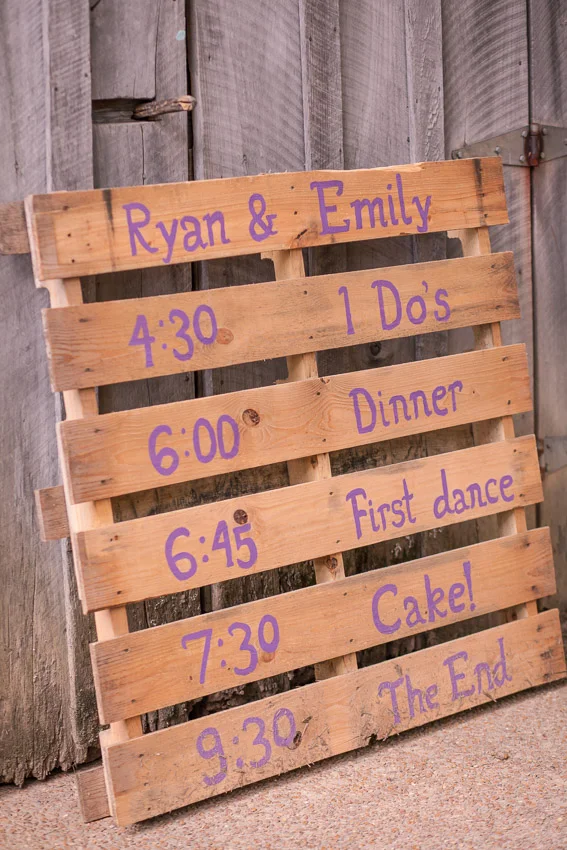 Ryan & Emily
4:30 I Do's
6:00 Dinner
6:45 First dance
7:30 Cake!
9:30 The End